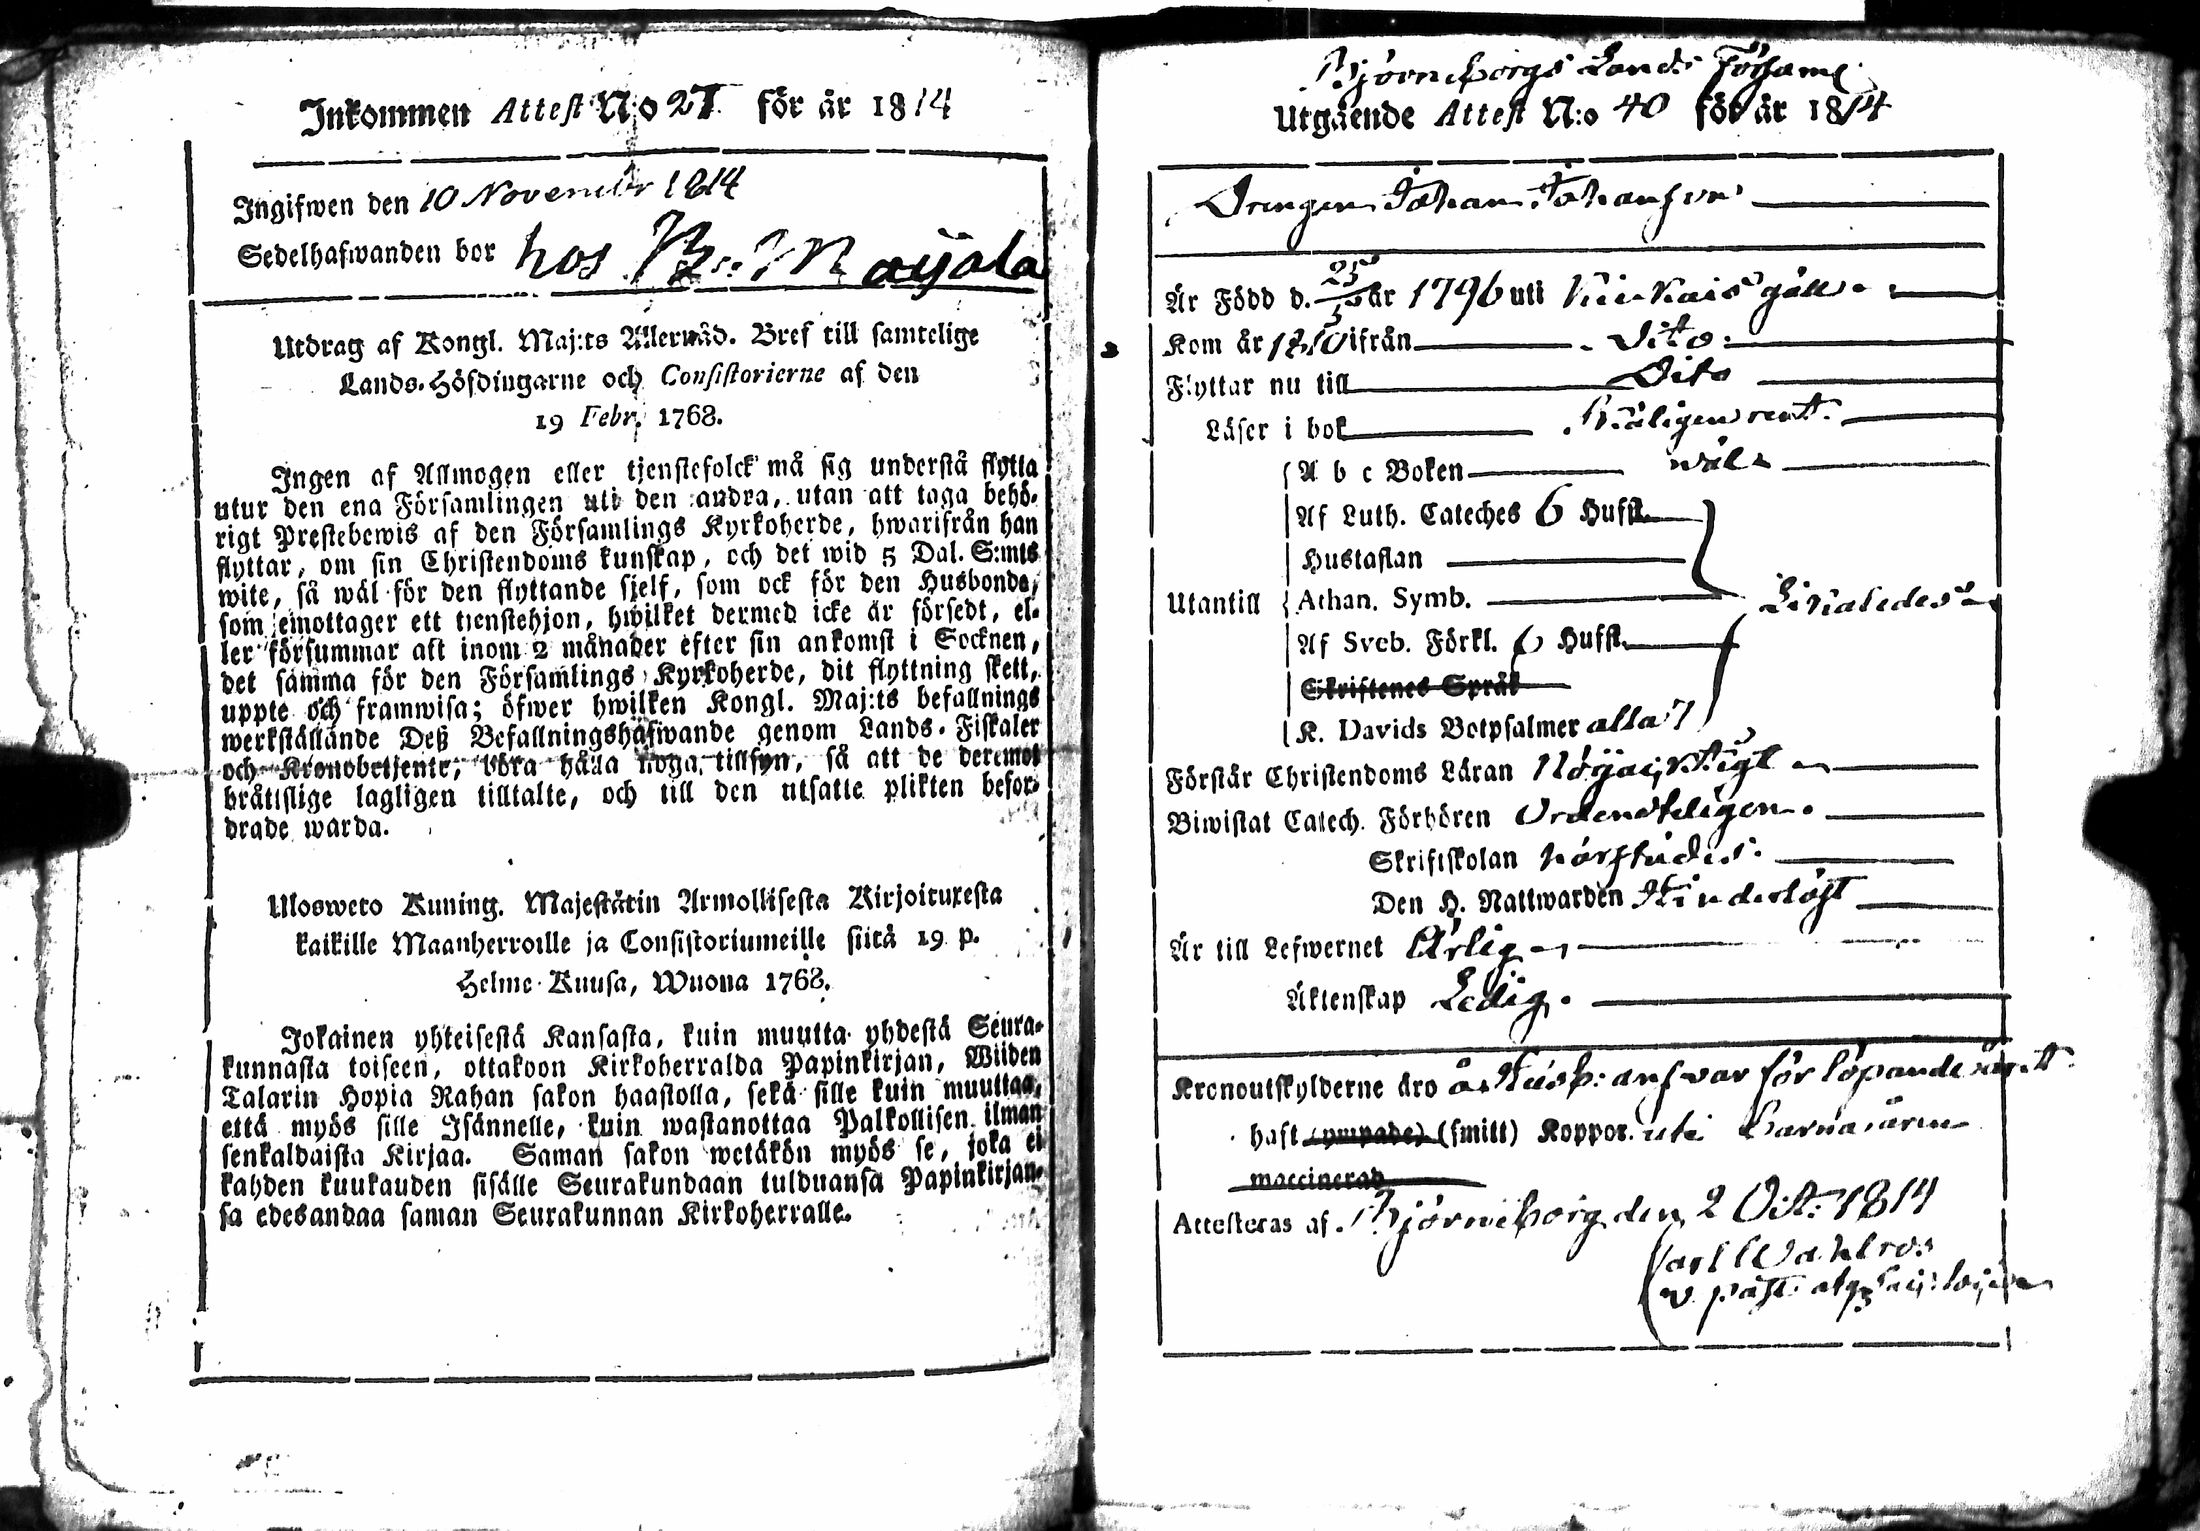 Inkommen Attest N:o 27 för år 1814
Ingifwen den 10 November 1814
Sedelhafwanden bor hos
Utdrag af Kongl. Maj:ts Allernåd. Bref till samtelige
Lands-Höfdingarne och Consistorierne af den
19 Febr. 1768.
Ingen af Allmogen eller tjenstefolck må sig understå flytta
utur den ena Församlingen uti den andra, utan att taga behö-
rigt Prestebewis af den Församlings Kyrkoherde, hwarifrån han
flyttar, om sin Christendoms kunskap, och det wid 5 Dal. S:mts
wite, så wäl för den flyttande sjelf, som ock för den Husbonde,
som emottager ett tienstehjon, hwilket dermed icke är försedt, el-
ler försummar att inom 2 månader efter sin ankomst i Socknen,
det samma för den Församlings Kyrkoherde, dit flyttning skett,
uppte och framwisa; öfwer hwilken Kongl. Maj:ts befallnings
werkställande Deß Befallningshafwande genom Lands-Fiskaler
och Kronobetjente, böra hålla noga tillsyn, så att de deremot
bråttslige lagligen tilltalte, och till den utsatte plikten befor-
drade warda.
Uloswero Kuning. Majestätin Armollisesta Kirjoituxesta
kaikille Maanherroille ja Consistoriumeille siitä 19 p.
Helme-Kuusa, Wuona 1768.
Jokainen yhteisestä Kansasta, kuin muutta yhdestä Seura-
kunnasta toiseen, ottakoon Kirkoherralda Papinkirjan, Wiiden
Talarin Hopia Rahan sakon haastolla, sekä sille kuin muuttaa,
että myös sille Isännelle, kuin wastanottaa Palkollisen ilman
senkaldaista Kirjaa. Saman sakon wetäkön myös se, joka ei
kahden kuukauden sisälle Seurakundaan tulduansa Papinkirjan-
sa edesandaa saman Seurakunnan Kirkoherralle.
Björneborgs Lands Församl.
Utgående Attest N:o 40 för år 1814
Drengen Johan Johansson
Är Född d. 25/5 år 1796 uti
Kom år 1810 ifrån Dito
Flyttar nu till Dito
Läser i bok rent.
A b c Boken wäl
Af Luth. Cateches 6 Hufst.
Hustaflan
Utantill Athan. Symb. Likaledes
Af Sveb. Förkl. 6 Hufst.
Skriftenes Språk
K. Davids Botpsalmer alla 7
Förstår Christendoms Läran Nöjacktigt
Biwistat Catech. Förhören Ordenteligen.
Skriftskolan
Den H. Nattwarden
Är till Lefwernet Ärlig
Äktenskap Ledig.
Kronoutskylderne äro å Husb: answar för löpande året
haft (ympade) (smitt) Koppor uti barna åren
waccinerad
Attesteras af Björneborg den 2 Oct: 1814
Carl Wahlros